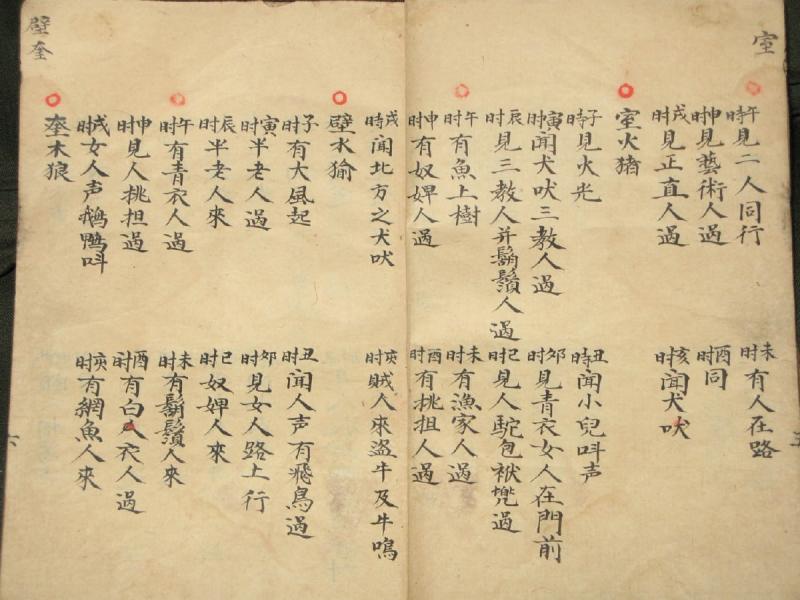 室
午时見二人同行
未时有人在路
申时見藝術人過
酉时同
戌时見正直人過
亥时闻犬吠
室火猪
子时見火光
丑时闻小兒呌声
寅时闻犬吠三教人過
卯时見青衣女人在門前
辰时見三教人并鬍鬚人過
巳时見人駝包袱過
午时有魚上樹
未时有漁家人過
申时有奴婢人過
酉时有挑担人過
戌时闻北方之犬吠
亥时賊人來盗牛及牛鳴
壁水㺄
子时有大風起
丑时闻人声有飛鳥過
寅时半老人過
卯时見女人路上行
辰时半老人來
巳时奴婢人來
午时有青衣人過
未时有鬍鬚人來
申时見人挑担過
酉时有白衣人過
戌时女人声鵝鴨呌
亥时有網魚人來
奎木狼
壁奎